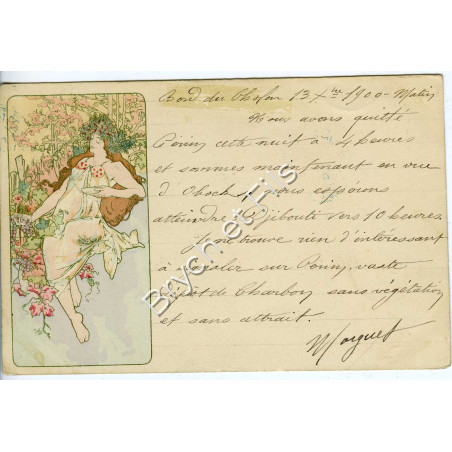 Bord du Oholon 13 Xbre 1900 - Matin
Nous avons quitté
Périm cette nuit à 4 heures
et sommes maintenant en vue
d'Obock, nous espérons
atteindre Djibouti vers 10 heures.
Je ne trouve rien d'intéressant
à signaler sur Périm, vaste
dépôt de Charbon sans végétation
et sans attrait.
Morguet
Bayonetois